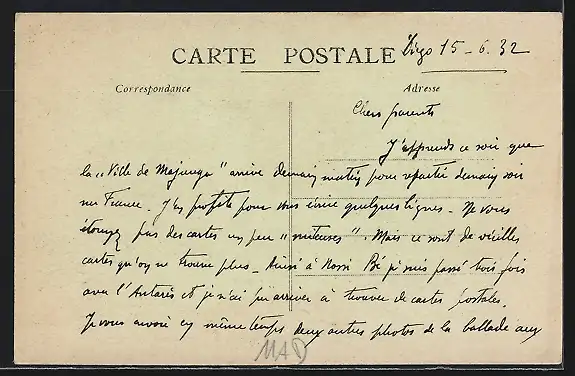 CARTE POSTALE
Diego 15-6.32
Correspondance
Adresse
Chers parents
J'apprends ce soir que
la "Ville de Majunga" arrive demain matin pour repartir demain soir
sur France. J'en profite pour vous écrire quelques lignes. Ne vous
étonnez pas des cartes un peu "miteuses". Mais ce sont de vieilles
cartes qu'on ne trouve plus. Ainsi à Nossi Bé je suis passé trois fois
avec l'Antarès et je n'ai pu arriver à trouver de cartes postales.
Je vous envoie en même temps deux autres photos de la ballade aux
MAD